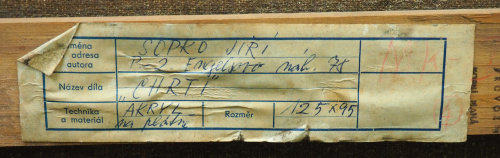 Jména a adresa autora SOPKO JIŘÍ
P-2 Engelsovo náb. 78
Název díla "CHRTI"
Technika a materiál "AKRYL na plátně Rozměr 125 x 95